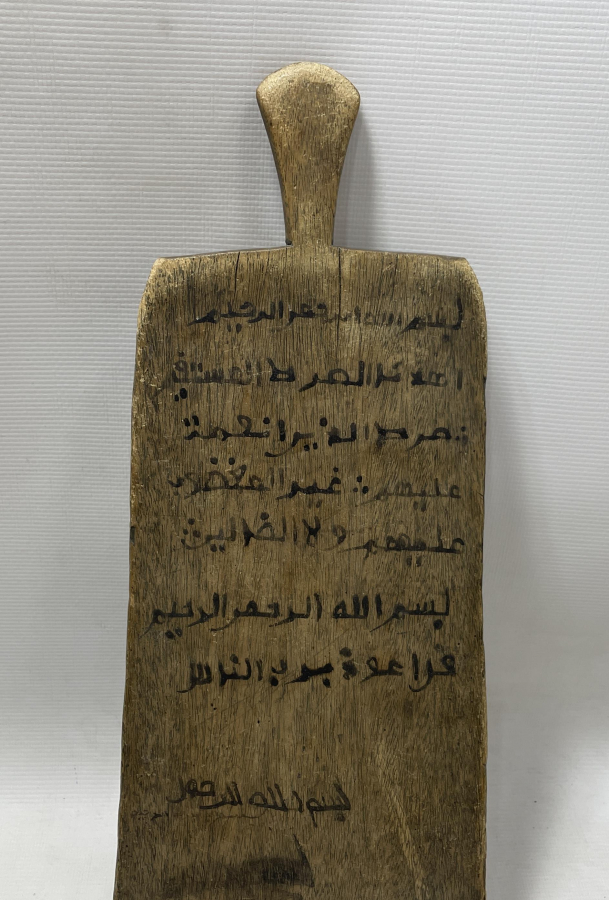 بسم الله الرحمر الرحيم
اهد نا الصرط المستقيم
صرط الذير انعمت
عليهم غير المغضوب
عليهم ولا الضالين
بسم الله الرحمر الرحيم
قل اعوذ برب الناس
بسم الله الرحمر